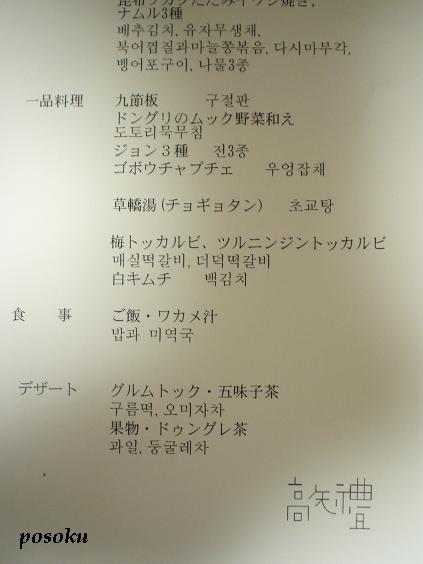 昆布ツガクたたみイワシ焼き、
ナムル3種
배추김치, 유자무생채,
북어껍질과마늘쫑볶음, 다시마부각,
뱅어포구이, 나물3종
一品料理 九節板 구절판
ドングリのムック野菜和え
도토리묵무침
ジョン３種 전3종
ゴボウチャプチェ 우엉잡채
草轎湯(チョギョタン) 초교탕
梅トッカルビ、ツルニンジントッカルビ
매실떡갈비, 더덕떡갈비
白キムチ 백김치
食 事 ご飯・ワカメ汁
밥과 미역국
デザート グルムトック・五味子茶
구름떡, 오미자차
果物・ドゥングレ茶
과일, 둥굴레차
高矢禮
posoku